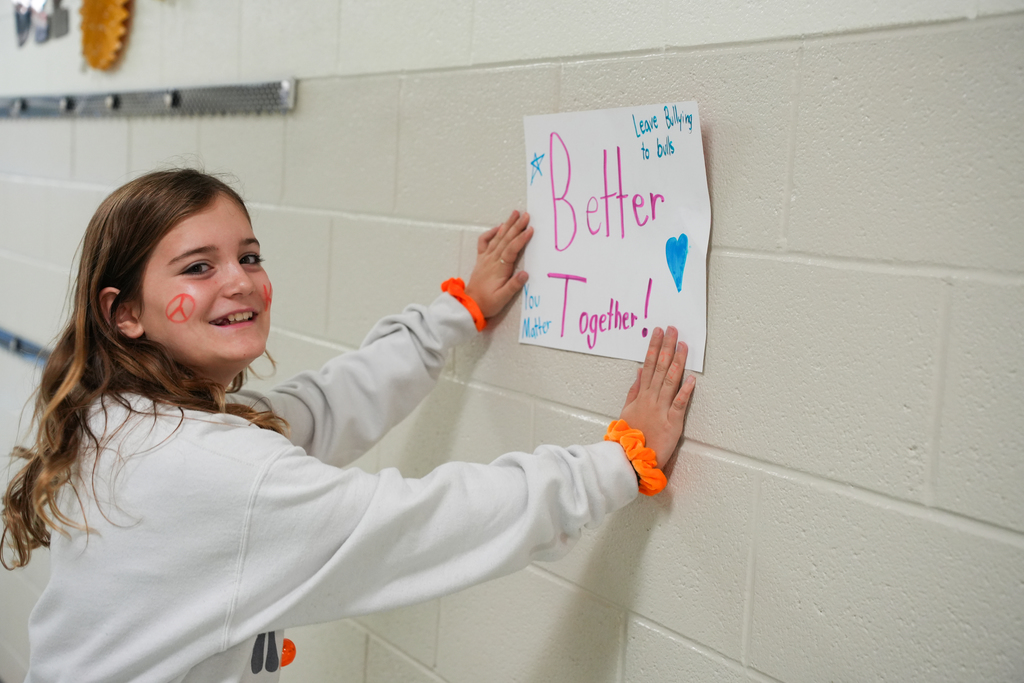 Leave Bullying
to bulls
Better
Together!
You
Matter